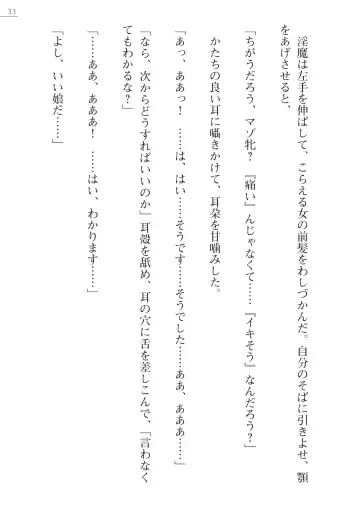 33
淫魔は左手を伸ばして、こらえる女の前髪をわしづかんだ。自分のそばに引きよせ、顎
をあげさせると、
「ちがうだろう、マゾ牝？　『痛い』んじゃなくて……『イキそう』なんだろう？」
かたちの良い耳に囁きかけて、耳朶を甘噛みした。
「あっ、ああっ！　……は、はい……そうです……そうでした……ああ、あああ……」
「なら、次からどうすればいいのか」耳殻を舐め、耳の穴に舌を差しこんで、「言わなく
てもわかるな？」
「……ああ、あああ！　……はい、わかります……」
「よし、いい娘だ……」